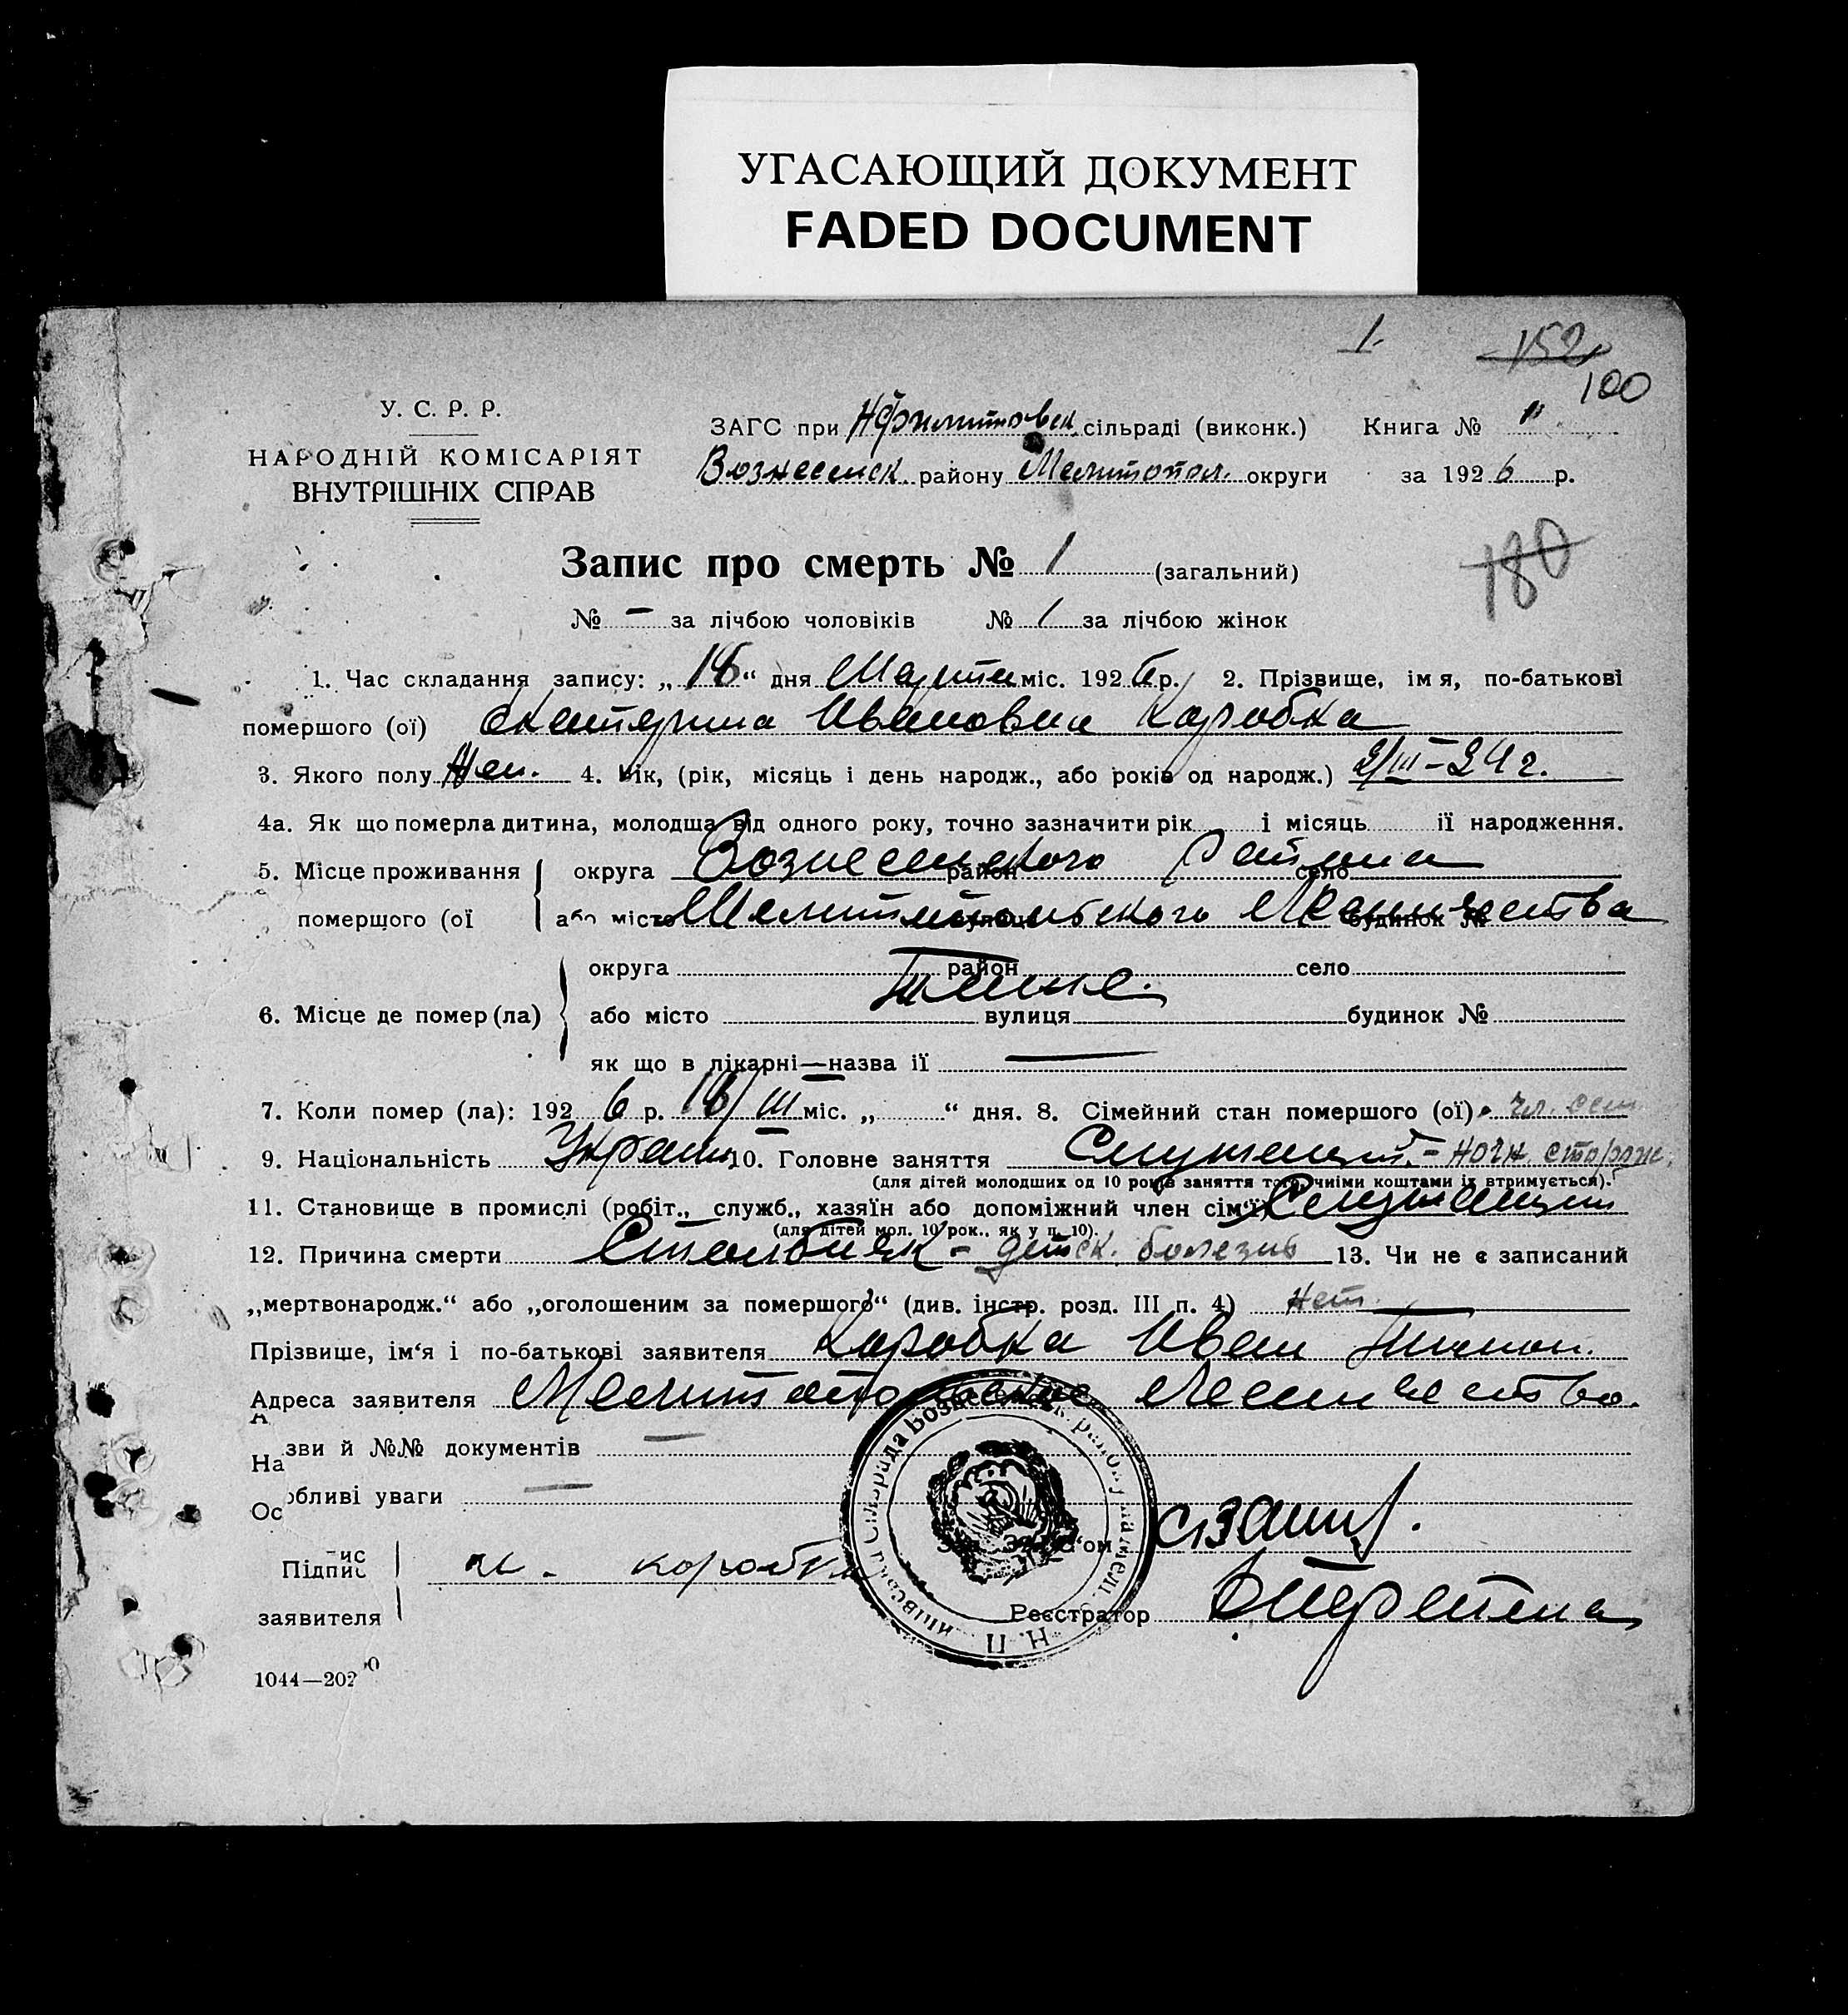 УГАСАЮЩИЙ ДОКУМЕНТ
FADED DOCUMENT
1.
152
100
У. С. Р. Р.
НАРОДНІЙ КОМІСАРІЯТ
ВНУТРІШНІХ СПРАВ
ЗАГС при сільраді (виконк.) Книга № "
Вознесенск. району Мелитопол. округи за 1926 р.
180
Запис про смерть № 1 (загальний)
№ – за лічбою чоловіків № 1 за лічбою жінок
1. Час складання запису: „18“ дня Марта міс. 1926 р. 2. Прізвище, імя, по-батькові
помершого (ої) Екатерина Ивановна Коробка
3. Якого полу Жен. 4. Вік, (рік, місяць і день народж., або років од народж.) 2/III–24 г.
4а. Як що померла дитина, молодща від одного року, точно зазначити рік і місяць ії народження.
5. Місце проживання округа Вознесенского район Района село
помершого (ої або місто Мелитопольского вулиця Лесничества будинок №
округа район село
Там же.
6. Місце де помер (ла) або місто вулиця будинок №
як що в лікарні—назва ії —
7. Коли помер (ла): 1926 р. 18/III міс. „ “ дня. 8. Сімейний стан помершого (ої) чл. сем.
9. Національність Украин. 10. Головне заняття Служащий. – ночн. сторож.
(для дітей молодших од 10 років заняття того, чиїми коштами іх втримується).
11. Становище в промислі (робіт., служб., хазяїн або допоміжний член сім'ї) Служащий
(для дітей мол. 10 рок., як у п. 10).
12. Причина смерти Столбняк – детск. болезнь 13. Чи не є записаний
„мертвонародж.“ або „оголошеним за помершого“ (див. інстр. розд. III п. 4) Нет.
Прізвище, ім'я і по-батькові заявителя Коробка Иван
Адреса заявителя Мелитопольское Лесничество.
А
На зви й №№ документів —
Ос обливі уваги —
Зав. ЗАГС'ом
ис
Підпис
заявителя и. коробка
Реєстратор
1044—202